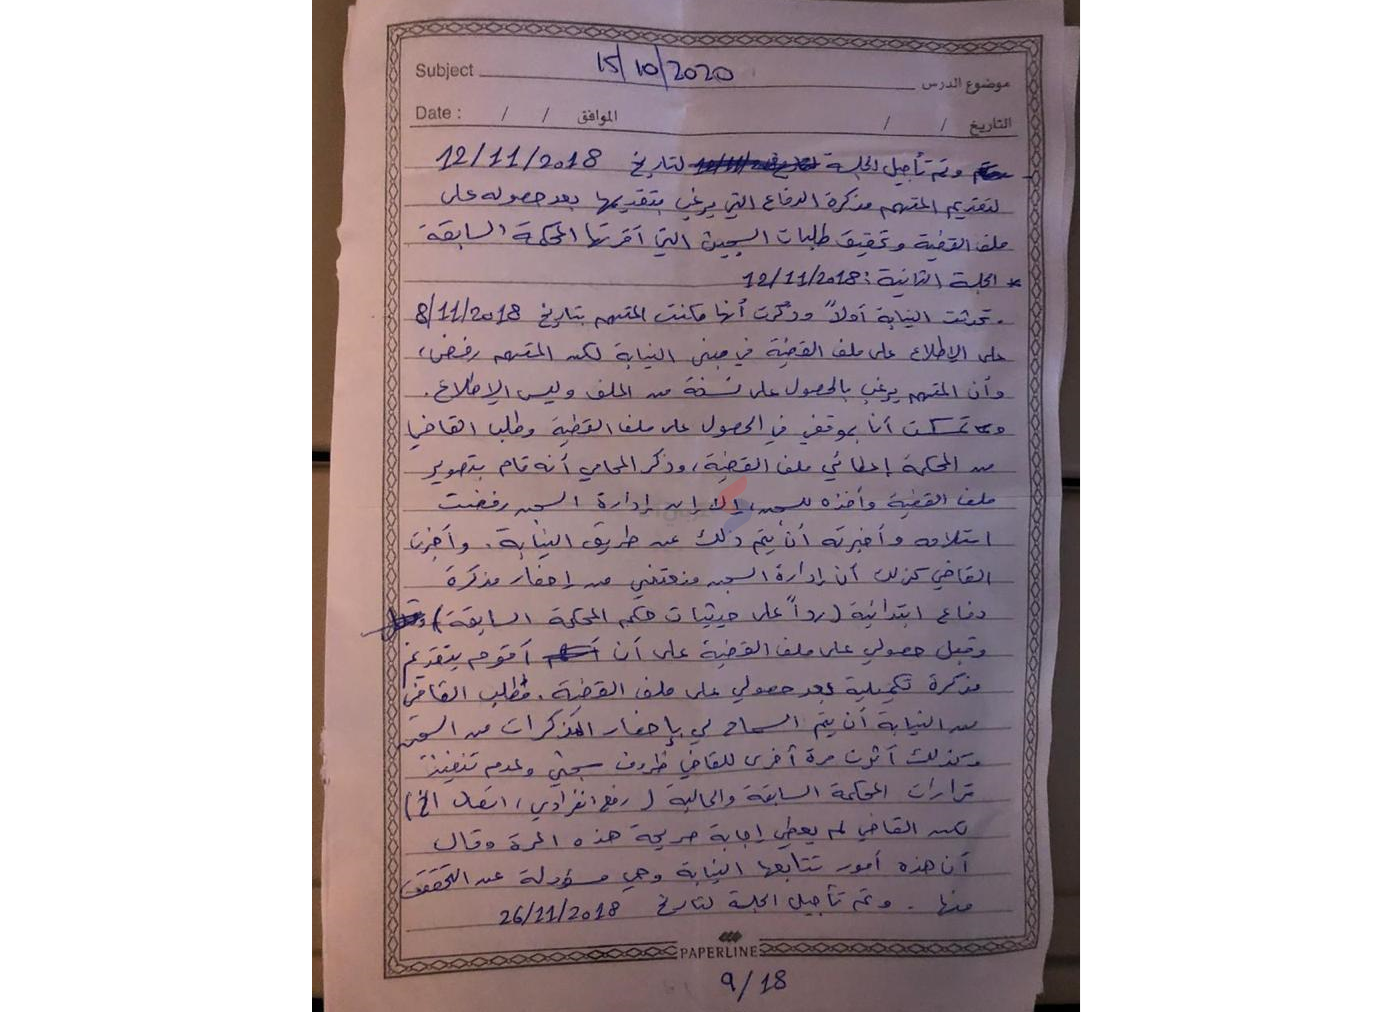 Subject 15/10/2020 موضوع الدرس
Date : / / الموافق / / التاريخ
وتم تأجيل الجلسة لتاريخ 12/11/2018
لتقديم المتهم مذكرة الدفاع التي يرغب بتقديمها بعد حصوله على
ملف القضية وتحقيق طلبات السجين التي أقرتها المحكمة السابقة
* الجلسة الثانية: 12/11/2018
. تحدثت النيابة أولاً وذكرت أنها مكنت المتهم بتاريخ 8/11/2018
على الإطلاع على ملف القضية في مبنى النيابة لكن المتهم رفض،
وأن المتهم يرغب بالحصول على نسخة من الملف وليس الإطلاع.
وتمسكت أنا بموقفي في الحصول على ملف القضية وطلب القاضي
من المحكمة إعطائي ملف القضية، وذكر المحامي أنه قام بتصوير
ملف القضية وأخذه للسجن، إلا إن إدارة السجن رفضت
استلامه وأخبرته أن يتم ذلك عن طريق النيابة. وأخبرت
القاضي كذلك أن إدارة السجن منعتني من إحضار مذكرة
دفاع ابتدائية (رداً على حيثيات حكم المحكمة السابقة)
وقبل حصولي على ملف القضية على أن أقوم بتقديم
مذكرة تكميلية بعد حصولي على ملف القضية. فطلب القاضي
من النيابة أن يتم السماح لي بإحضار المذكرات من السجن
وكذلك أثرت مرة أخرى للقاضي ظروف سجني وعدم تنفيذ
قرارات المحكمة السابقة والحالية (رفع انفرادي، اتصال الخ)
لكن القاضي لم يعطي إجابة صريحة هذه المرة وقال
أن هذه أمور تتابعها النيابة وهي مسؤولة عن التحقق
منها. وتم تأجيل الجلسة لتاريخ 26/11/2018
PAPERLINE
9/18